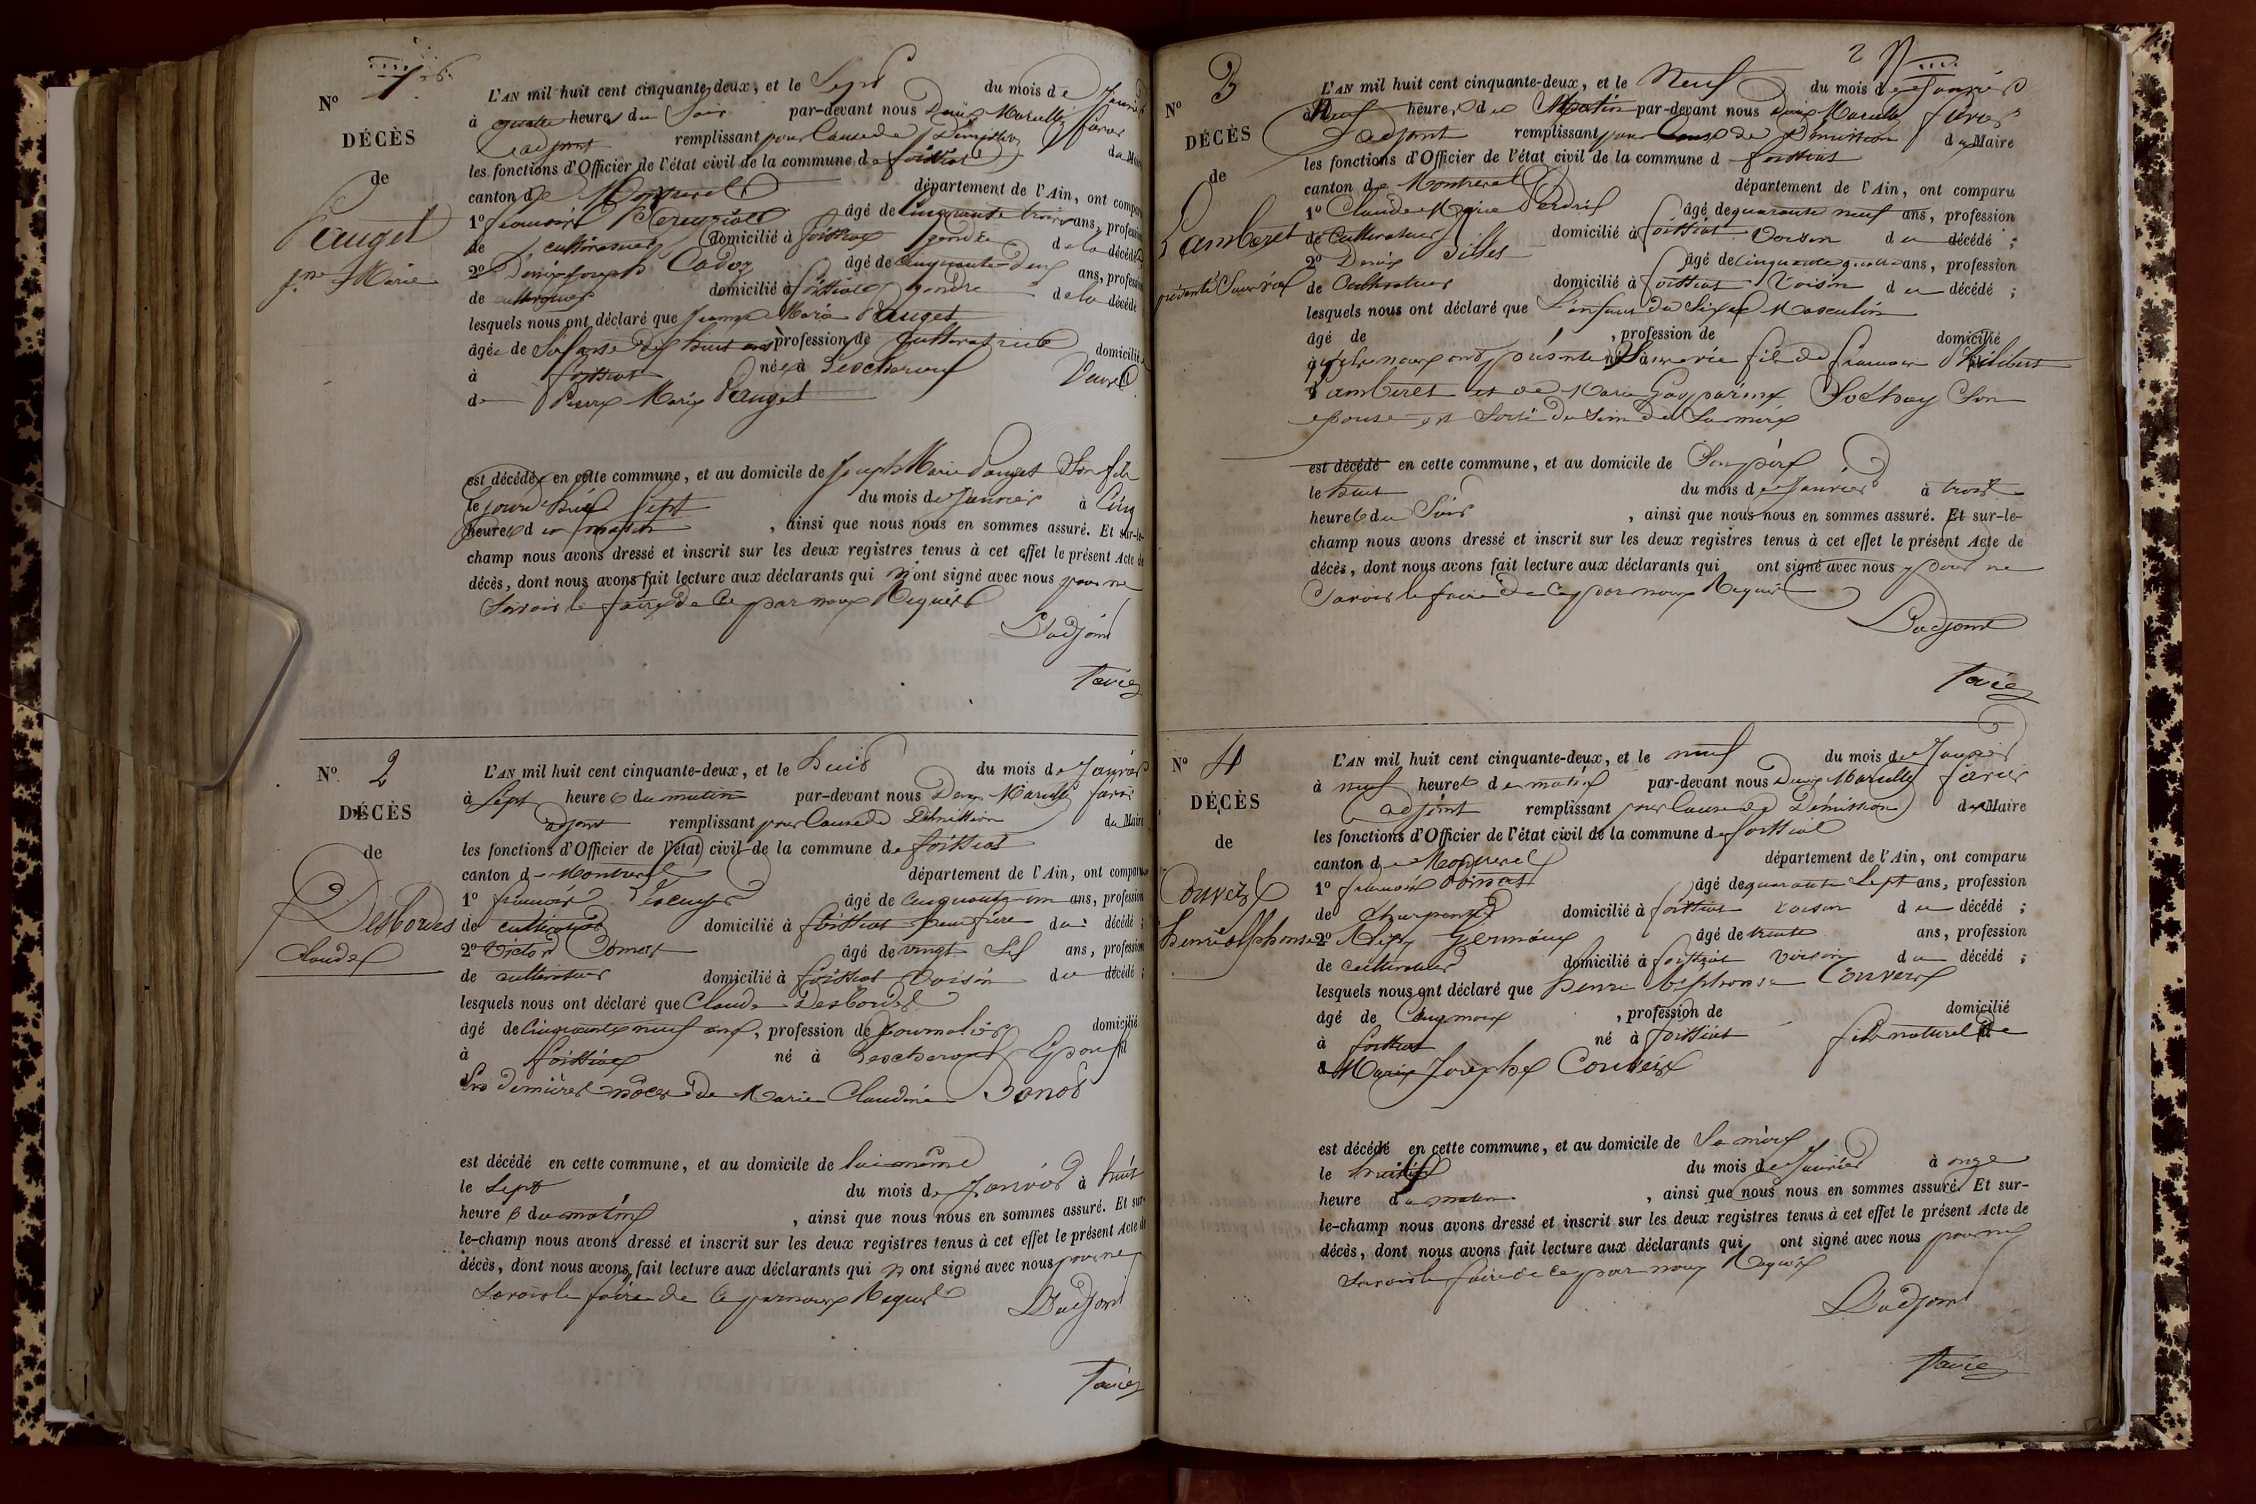 N° 1
DÉCÈS
de
Pauget
Jne Marie
L'AN mil huit cent cinquante-deux, et le Sept du mois de Janvier
à quatre heures du Soir par-devant nous Denis Marcelly favier
L'adjoint remplissant pour Cause de Démission du Maire
les fonctions d'Officier de l'état civil de la commune de foissiat
canton de Montrevel département de l'Ain, ont comparu
1° françois âgé de cinquante trois ans, profession
de cultivateur domicilié à foissiat gendre de la décédée
2° Denis Joseph Cadoz âgé de cinquante deux ans, profession
de cultivateur domicilié à foissiat gendre de la décédé
lesquels nous ont déclaré que Jeanne Marie Pauget
âgée de Soixante dix huit ans profession de Cultivatrice domicilié
à foissiat née à Lescheroux Veuve
de Pierre Marie Pauget
est décédée en cette commune, et au domicile de Joseph Marie Pauget Son fils
le jourd'hui Sept du mois de Janvier à Cinq
heures du matin, ainsi que nous nous en sommes assuré. Et sur-le-
champ nous avons dressé et inscrit sur les deux registres tenus à cet effet le présent Acte de
décès, dont nous avons fait lecture aux déclarants qui n'ont signé avec nous pour ne
Savoir le faire de Ce par nous Requis
L'adjoint
favier
N° 2
DÉCÈS
de
Desbordes
Claude
L'AN mil huit cent cinquante-deux, et le huit du mois de Janvier
à Sept heures du matin par-devant nous Denis Marcelly favier
adjoint remplissant pour Cause de Démission du Maire
les fonctions d'Officier de l'état civil de la commune de foissiat
canton de Montrevel département de l'Ain, ont comparu
1° françois âgé de cinquante un ans, profession
de cultivateur domicilié à foissiat beau frère du décédé ;
2° Victor Comest âgé de vingt Six ans, profession
de cultivateur domicilié à foissiat Voisin du décédé ;
lesquels nous ont déclaré que Claude Desbordes
âgé de Cinquante neuf ans, profession de Journalier domicilié
à foissiat né à Lescheroux Epoux
en dernières noces de Marie Claudine
est décédé en cette commune, et au domicile de lui même
le Sept du mois de Janvier à huit
heures du matin, ainsi que nous nous en sommes assuré. Et sur-
le-champ nous avons dressé et inscrit sur les deux registres tenus à cet effet le présent Acte de
décès, dont nous avons fait lecture aux déclarants qui n ont signé avec nous pour ne
Savoir le faire de Ce par nous Requis
L'adjoint
favier
2
N° 3
DÉCÈS
de
Pamberet
présenté Sans vie
L'AN mil huit cent cinquante-deux, et le Neuf du mois de Janvier
à Neuf heures du Matin par-devant nous Denis Marcelly favier
L'adjoint remplissant pour Cause de Démission du Maire
les fonctions d'Officier de l'état civil de la commune d foissiat
canton de Montrevel département de l'Ain, ont comparu
1° Claude Marie Perdrix âgé de quarante neuf ans, profession
de Cultivateur domicilié à foissiat Voisin du décédé ;
2° Denis âgé de cinquante quatre ans, profession
de Cultivateur domicilié à foissiat Voisin du décédé ;
lesquels nous ont déclaré que L'enfant du Sexe Masculin
âgé de , profession de domicilié
qu'ils nous ont présenté Sans vie fils de françois Philibert
Pamberet et de Marie Gasparine Sochay Son
épouse, est Sorti du Sein de Sa mère
est décédé en cette commune, et au domicile de Son père
le huit du mois de Janvier à trois
heures du Soir, ainsi que nous nous en sommes assuré. Et sur-le-
champ nous avons dressé et inscrit sur les deux registres tenus à cet effet le présent Acte de
décès, dont nous avons fait lecture aux déclarants qui ont signé avec nous pour ne
Savoir le faire de Ce par nous Requis
L'adjoint
favier
N° 4
DÉCÈS
de
Convert
henri alphonse
L'AN mil huit cent cinquante-deux, et le neuf du mois de Janvier
à neuf heures du matin par-devant nous Denis Marcelly favier
adjoint remplissant pour Cause de Démission du Maire
les fonctions d'Officier de l'état civil de la commune de foissiat
canton de Montrevel département de l'Ain, ont comparu
1° françois âgé de quarante Sept ans, profession
de Charpentier domicilié à foissiat voisin du décédé ;
2° Germain âgé de trente ans, profession
de Cultivateur domicilié à foissiat voisin du décédé ;
lesquels nous ont déclaré que henri alphonse Convert
âgé de Cinq mois, profession de domicilié
à foissiat né à foissiat fils naturel de
Marie Josephe Convert
est décédé en cette commune, et au domicile de Sa mère
le huit du mois de Janvier à onze
heure du matin, ainsi que nous nous en sommes assuré. Et sur-
le-champ nous avons dressé et inscrit sur les deux registres tenus à cet effet le présent Acte de
décès, dont nous avons fait lecture aux déclarants qui ont signé avec nous pour ne
Savoir le faire de Ce par nous Requis
L'adjoint
favier